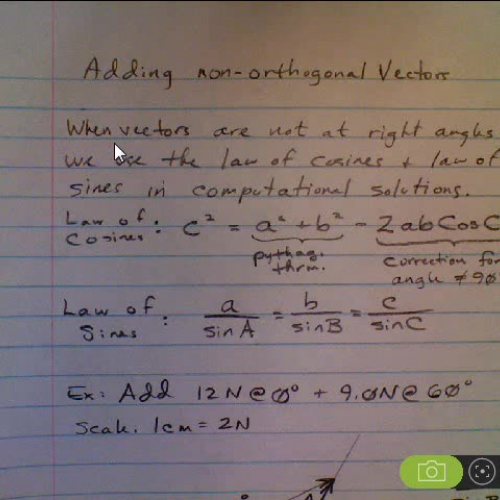 Adding non-orthogonal Vectors
When vectors are not at right angles
we use the law of cosines + law of
sines in computational solutions.
Law of Cosines: c² = a² + b² - 2abCosC
pythag. thrm.
correction for angle ≠ 90
Law of Sines: a/sinA = b/sinB = c/sinC
Ex: Add 12N@0° + 9.0N@60°
Scale: 1cm = 2N